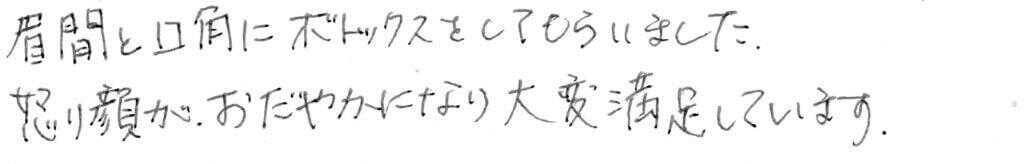 眉間と口角にボトックスをしてもらいました.
怒り顔が.おだやかになり大変満足しています.